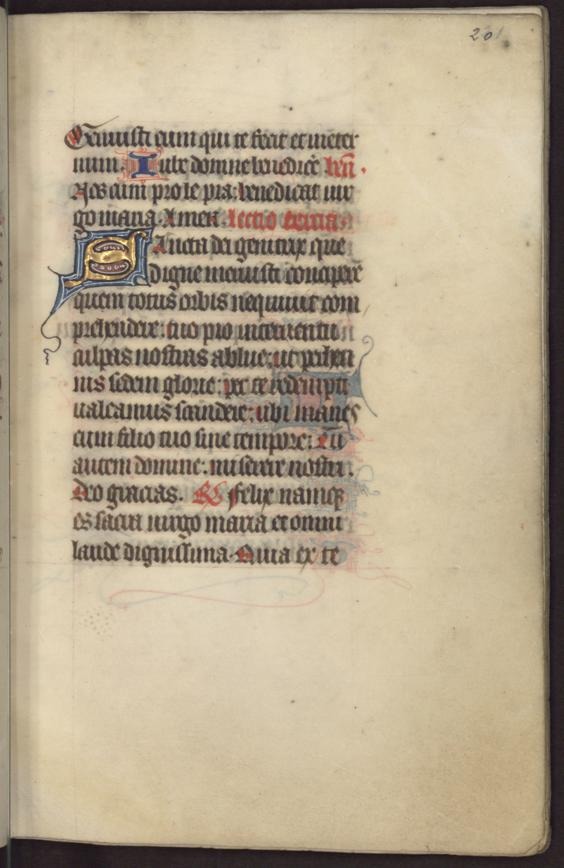 201
Genuisti eum qui te fecit et in eter
num. Iube domne benedicere ben.
Nos cum prole pia: benedicat uir
go maria. Amen. lectio tertia.
Sancta dei genitrix que
digne meruisti concipere
quem totus orbis nequiuit com
prehendere: tuo pio interuentu
culpas nostras ablue: ut perhen
nis sedem glorie: per te redempti
ualeamus scandere: ubi manes
cum filio tuo sine tempore: Tu
autem domine: miserere nostri.
Deo gracias. R felix namq
es sacra uirgo maria et omni
laude dignissima. Quia ex te